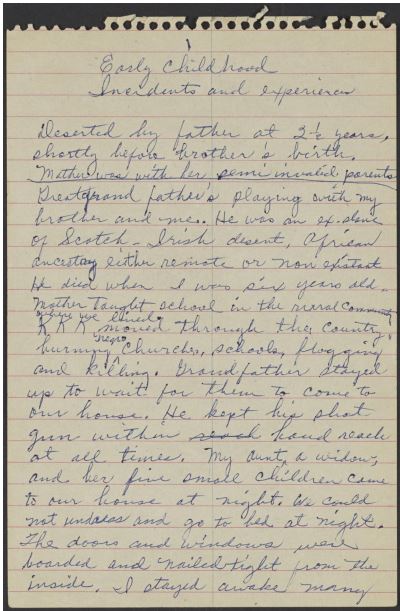 Early childhood
Incidents and experiences
Deserted by father at 2½ years,
shortly before brother's birth.
Mother was with her semi invalid parents
Greatgrand father's playing with my
brother and me.. He was an ex-slave
of Scotch-Irish desent, African
ancestry either remote or non existant
He died when I was six years old.
Mother taught school in the rural community
where we lived.
K K K moved through the country
negro
burning churches, schools, flogging
and killing. Grandfather stayed
up to wait for them to come to
our house. He kept his shot
gun within reach hand reach
at all times. My aunt, a widow,
and her five small children came
to our house at night. We could
not undress and go to bed at night.
The doors and windows were
boarded and nailed tight from the
inside. I stayed awake many